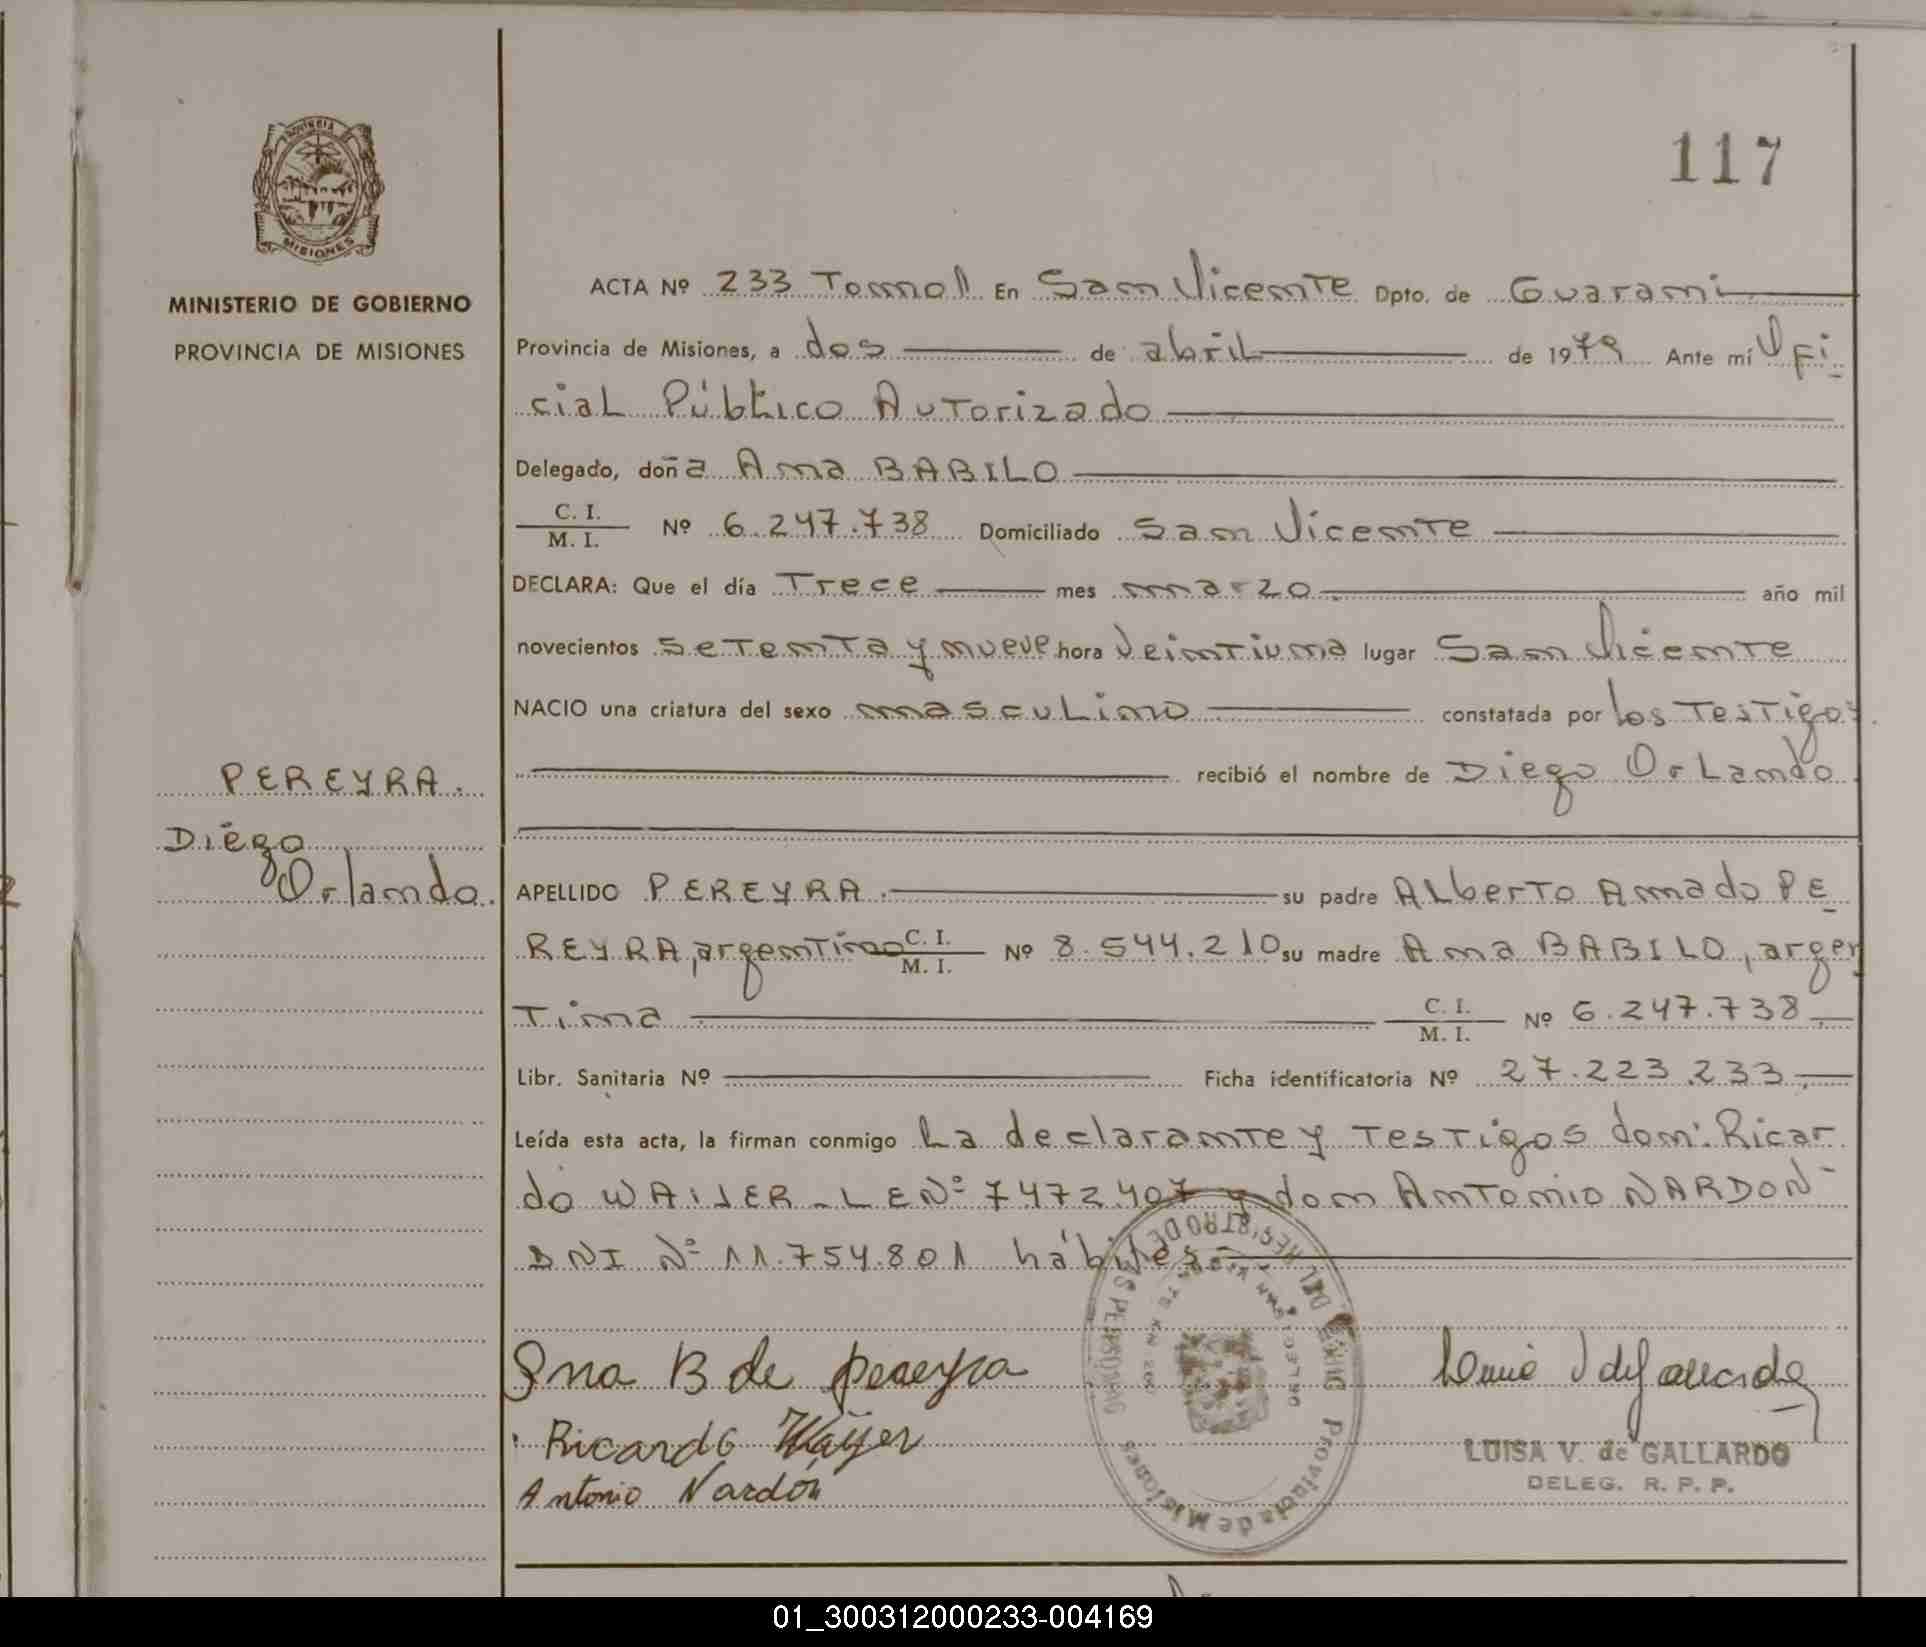 117
PROVINCIA
MISIONES
MINISTERIO DE GOBIERNO
PROVINCIA DE MISIONES
ACTA Nº 233 Tomo II En San Vicente Dpto. de Guarani
Provincia de Misiones, a dos de abril de 1979 Ante mí Ofi
cial Público Autorizado
Delegado, doña Ana BABILO
C. I.
M. I. Nº 6.247.738 Domiciliado San Vicente
DECLARA: Que el día Trece mes marzo año mil
novecientos setenta y nueve hora veintiuna lugar San Vicente
NACIO una criatura del sexo masculino constatada por los Testigos
recibió el nombre de Diego Orlando
PEREYRA.
Diego
Orlando.
APELLIDO PEREYRA.- su padre Alberto Amado PE
REYRA, argentino C. I.
M. I. Nº 8.544.210 su madre Ana BABILO, argen
tina C. I.
M. I. Nº 6.247.738.-
Libr. Sanitaria Nº Ficha identificatoria Nº 27.223.233.-
Leída esta acta, la firman conmigo La declarante y Testigos don: Ricar
do WAIJER - LE Nº 7.472.407 y don Antonio NARDON-
DNI Nº 11.754.801 hábiles.-
Ana B de Pereyra
Ricardo Waijer
Antonio Nardón
Provincia de Misiones
LUISA V. de GALLARDO
DELEG. R. P. P.
01_300312000233-004169